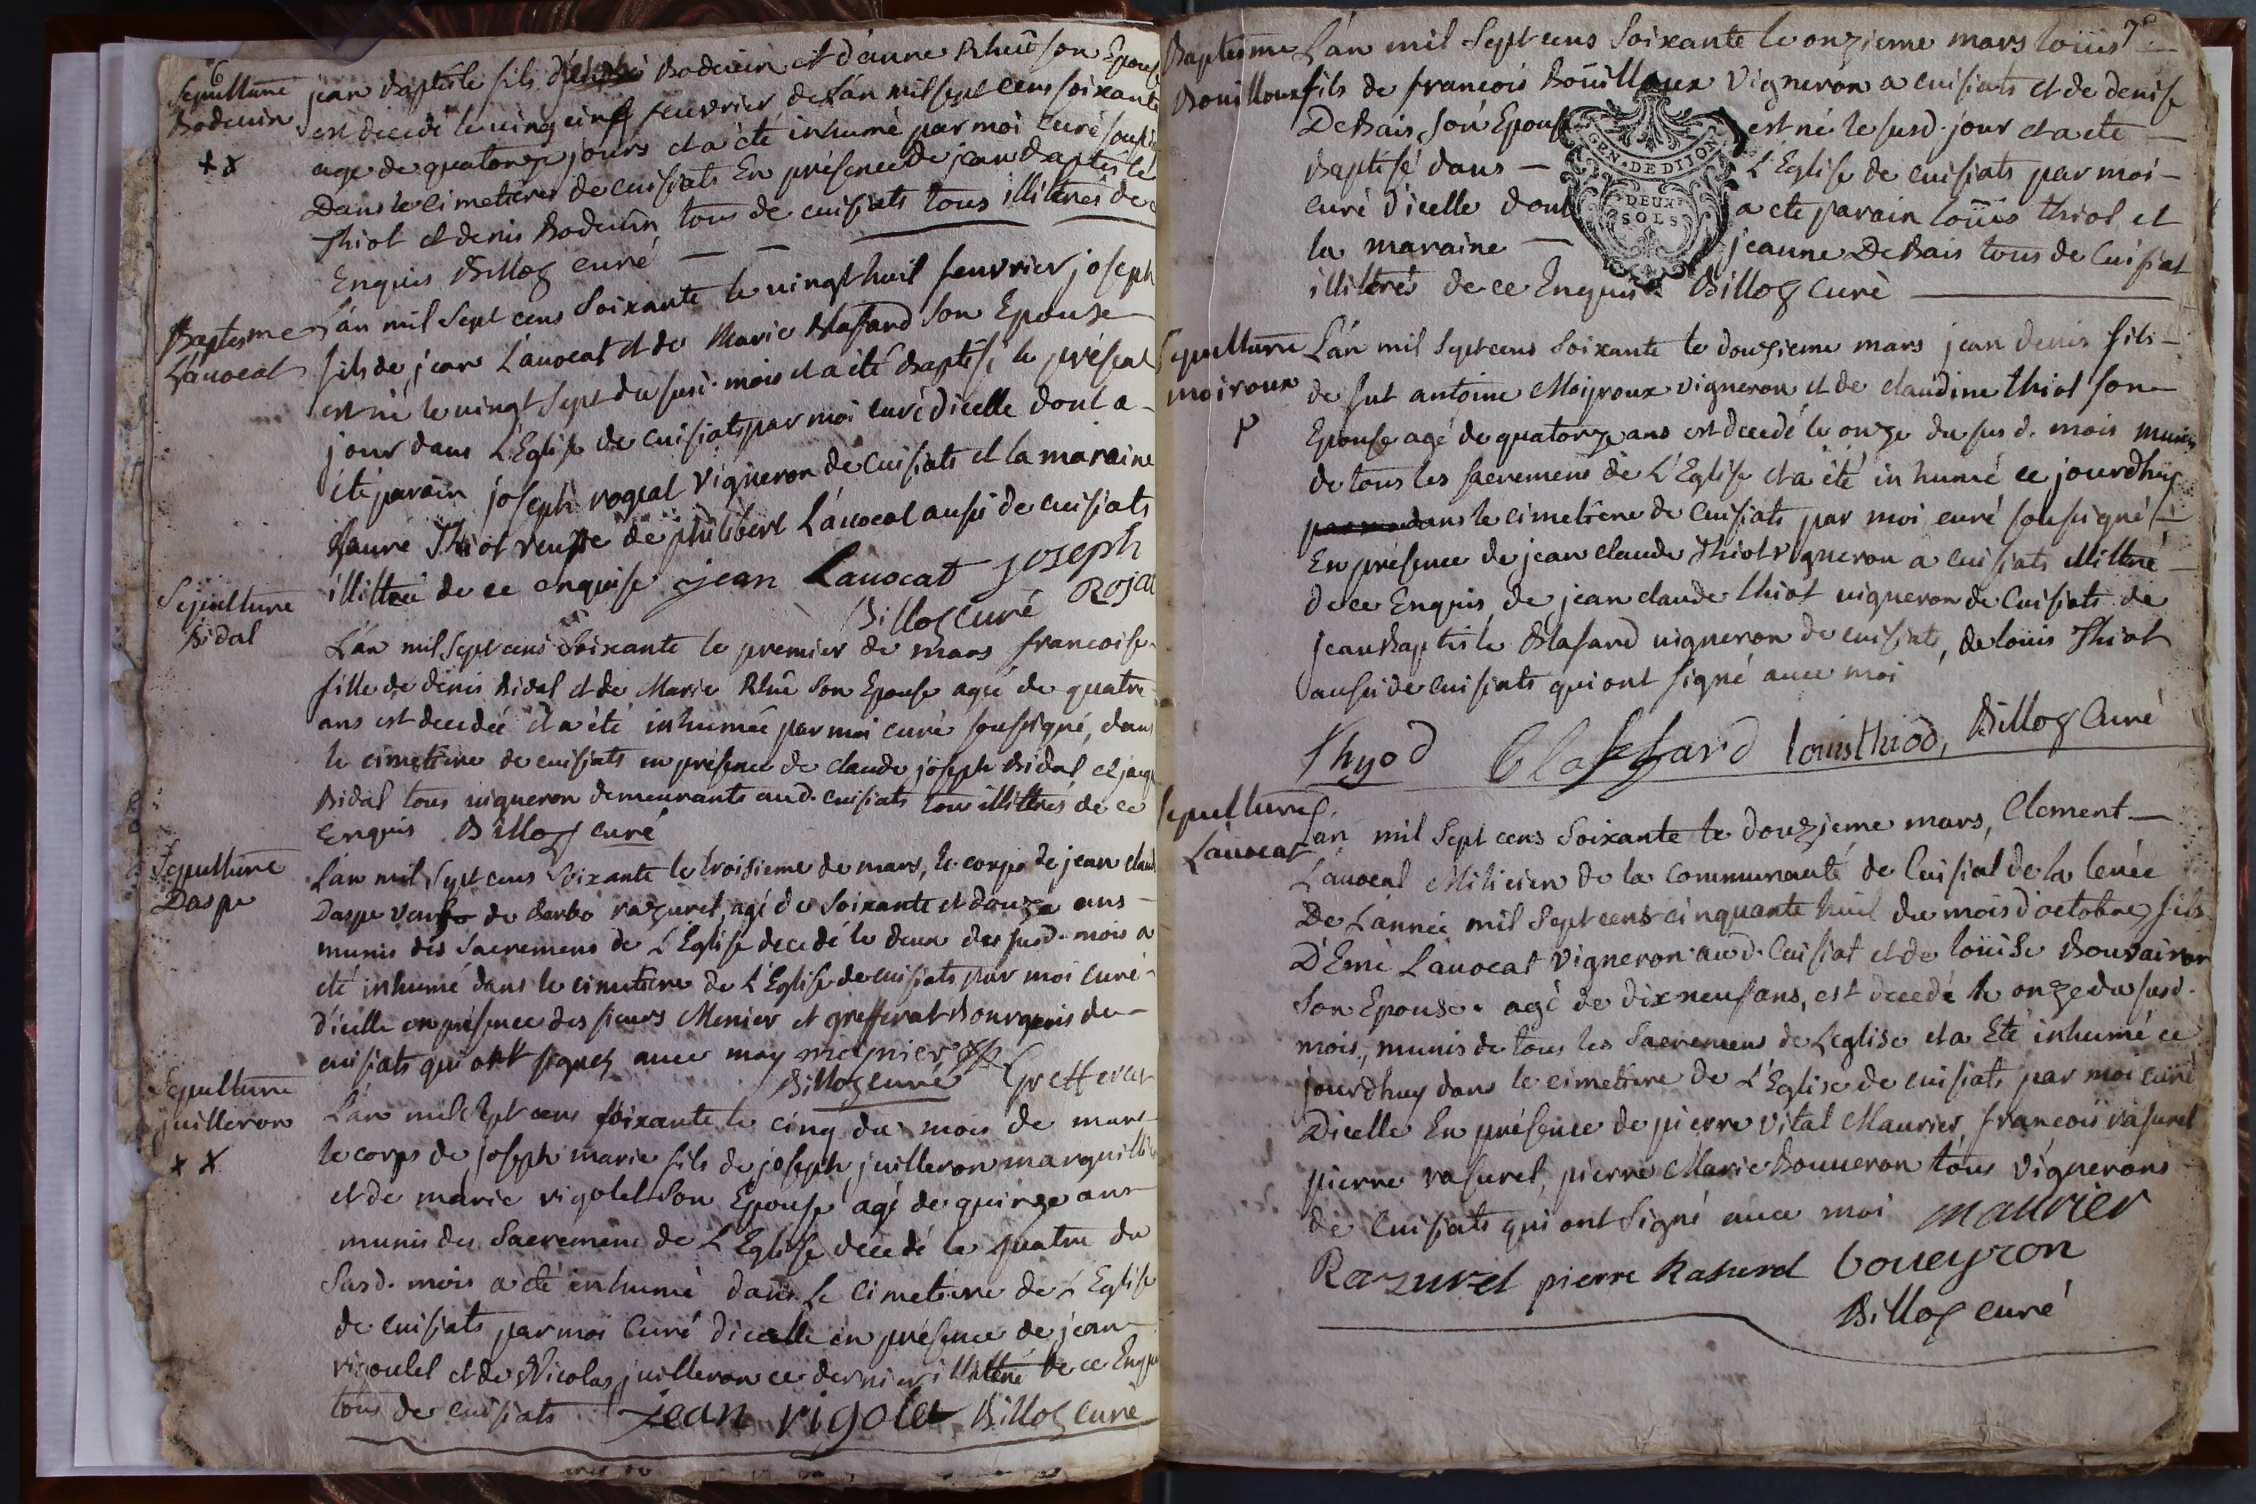 6
Sepulture
Boduin
jean Baptiste fils Boduin et d'anne Rhuë son Epouse
est decedé le ving cinq feuvrier de L'an mil sept cens soixante
agé de quatorze jours et a été inhumé par moi curé
Dans le cimetiere de cuisiats En présence de jean Baptiste
Thiot et denis Boduin tous de cuisiats tous illiterés de ce
Enquis Billoz curé
Baptesme
L'auocat
L'an mil sept cens soixante le vingt huit feuvrier joseph
fils de jean L'auocat et de Marie Blafard son Epouse
est né le uingt sept du susd. mois et a été Baptisé le présent
jour dans L'Eglise de cuisiats par moi curé dicelle dont a
été parain joseph rogeat vigneron de cuisiats et la maraine
Thiot veufve de philibert L'auocat aussi de cuisiats
illittré de ce enquise jean Lauocat joseph
Rojat
Billoz curé
Sepulture
Bidal
L'an mil sept cens soixante le premier de mars francoise
fille de denis Bidal et de Marie Rhuë son Epouse agé de quatre
ans est decedée et a été inhumée par moi curé soussigné, dans
le cimetiere de cuisiats en présence de claude joseph Bidal et
Bidal tous uigneron demeurants aud. cuisiats tous illittrés de ce
Enquis Billoz curé
Sepulture
Daspe
L'an mil sept cens soixante le troisieme de mars, le corps de jean
Daspe veuf de Barbe razuret, agé de soixante et douze ans
munis des sacremens de L'Eglise decedé le deux du susd. mois a
été inhumé dans le cimetiere de L'Eglise de cuisiats par moi curé
d'icelle en présence des sieurs Menier et grefferat Bourgeois de
cuisiats qui ont signez auec moy meynier
Billoz curé Grefferat
Sepulture
juilleron
L'an mil sept cens soixante le cinq du mois de mars
le corps de joseph marie fils de joseph juilleron marguillier
et de marie rigolet son Epouse agé de quinze ans
munis des sacremens de L'Eglise decedé le quatre du
susd. mois a été inhumé dans le cimetiere de L'Eglise
de cuisiats par moi curé dicelle en présence de jean
rigoulet et de Nicolas juilleron ce dernier illittéré de ce
tous de cuisiats jean rigolet Billoz curé
7e
Baptesme
Bouilloux
L'an mil sept cens soixante le onzieme mars loüis
fils de francois Boüilloux vigneron a cuisiats et de denise
DeBais, son Epouse est né le susd. jour et a été
Baptisé dans L'Eglise de cuisiats par moi
GEN. DE DIJON
DEUX
SOLS
curé d'icelle dont a été parain loüis thiot et
la maraine jeanne DeBais tous de Cuisiat
illitéré de ce Enquis Billoz curé
Sepulture
moiroux
L'an mil sept cens soixante le douzieme mars jean denis fils
de fut antoine Moyroux vigneron et de claudine thiot son
Epouse agé de quatorze ans est decedé le onze du susd. mois munis
de tous les sacremens de L'Eglise et a été inhumé ce jourdhuy
dans le cimetiere de cuisiats par moi curé sousigné
En présence de jean claude Thiot vigneron a cuisiats illittré
de ce Enquis de jean claude thiot uigneron de Cuisiats de
jean Baptiste Blafard uigneron de cuisiats, de loüis Thiot
aussi de cuisiats qui ont signé auec moi
Thyod Blaffard louis thiod, Billoz Curé
Sepulture
L'auocat
L'an mil sept cens soixante le douzieme mars, Clement
L'auocat Milicien de la communauté de Cuisiat de la leuée
De L'année mil sept cens cinquante huit du mois d'octobre, fils
D'Emé Lauocat vigneron aud. Cuisiat et de loüise Bouvairon
son Epouse agé de dix neuf ans, est decedé le onze du susd.
mois, munis de tous les sacremens de L'eglise et a Eté inhumé ce
jourdhuy dans le cimetiere de L'Eglise de cuisiats par moi curé
Dicelle En présence de pierre vital Maurier, francois rasuret
pierre rasuret, pierre Marie Bouueron tous vignerons
de Cuisiats qui ont signé auec moi maurier
Razuret pierre Rasuret boueyron
Billoz curé